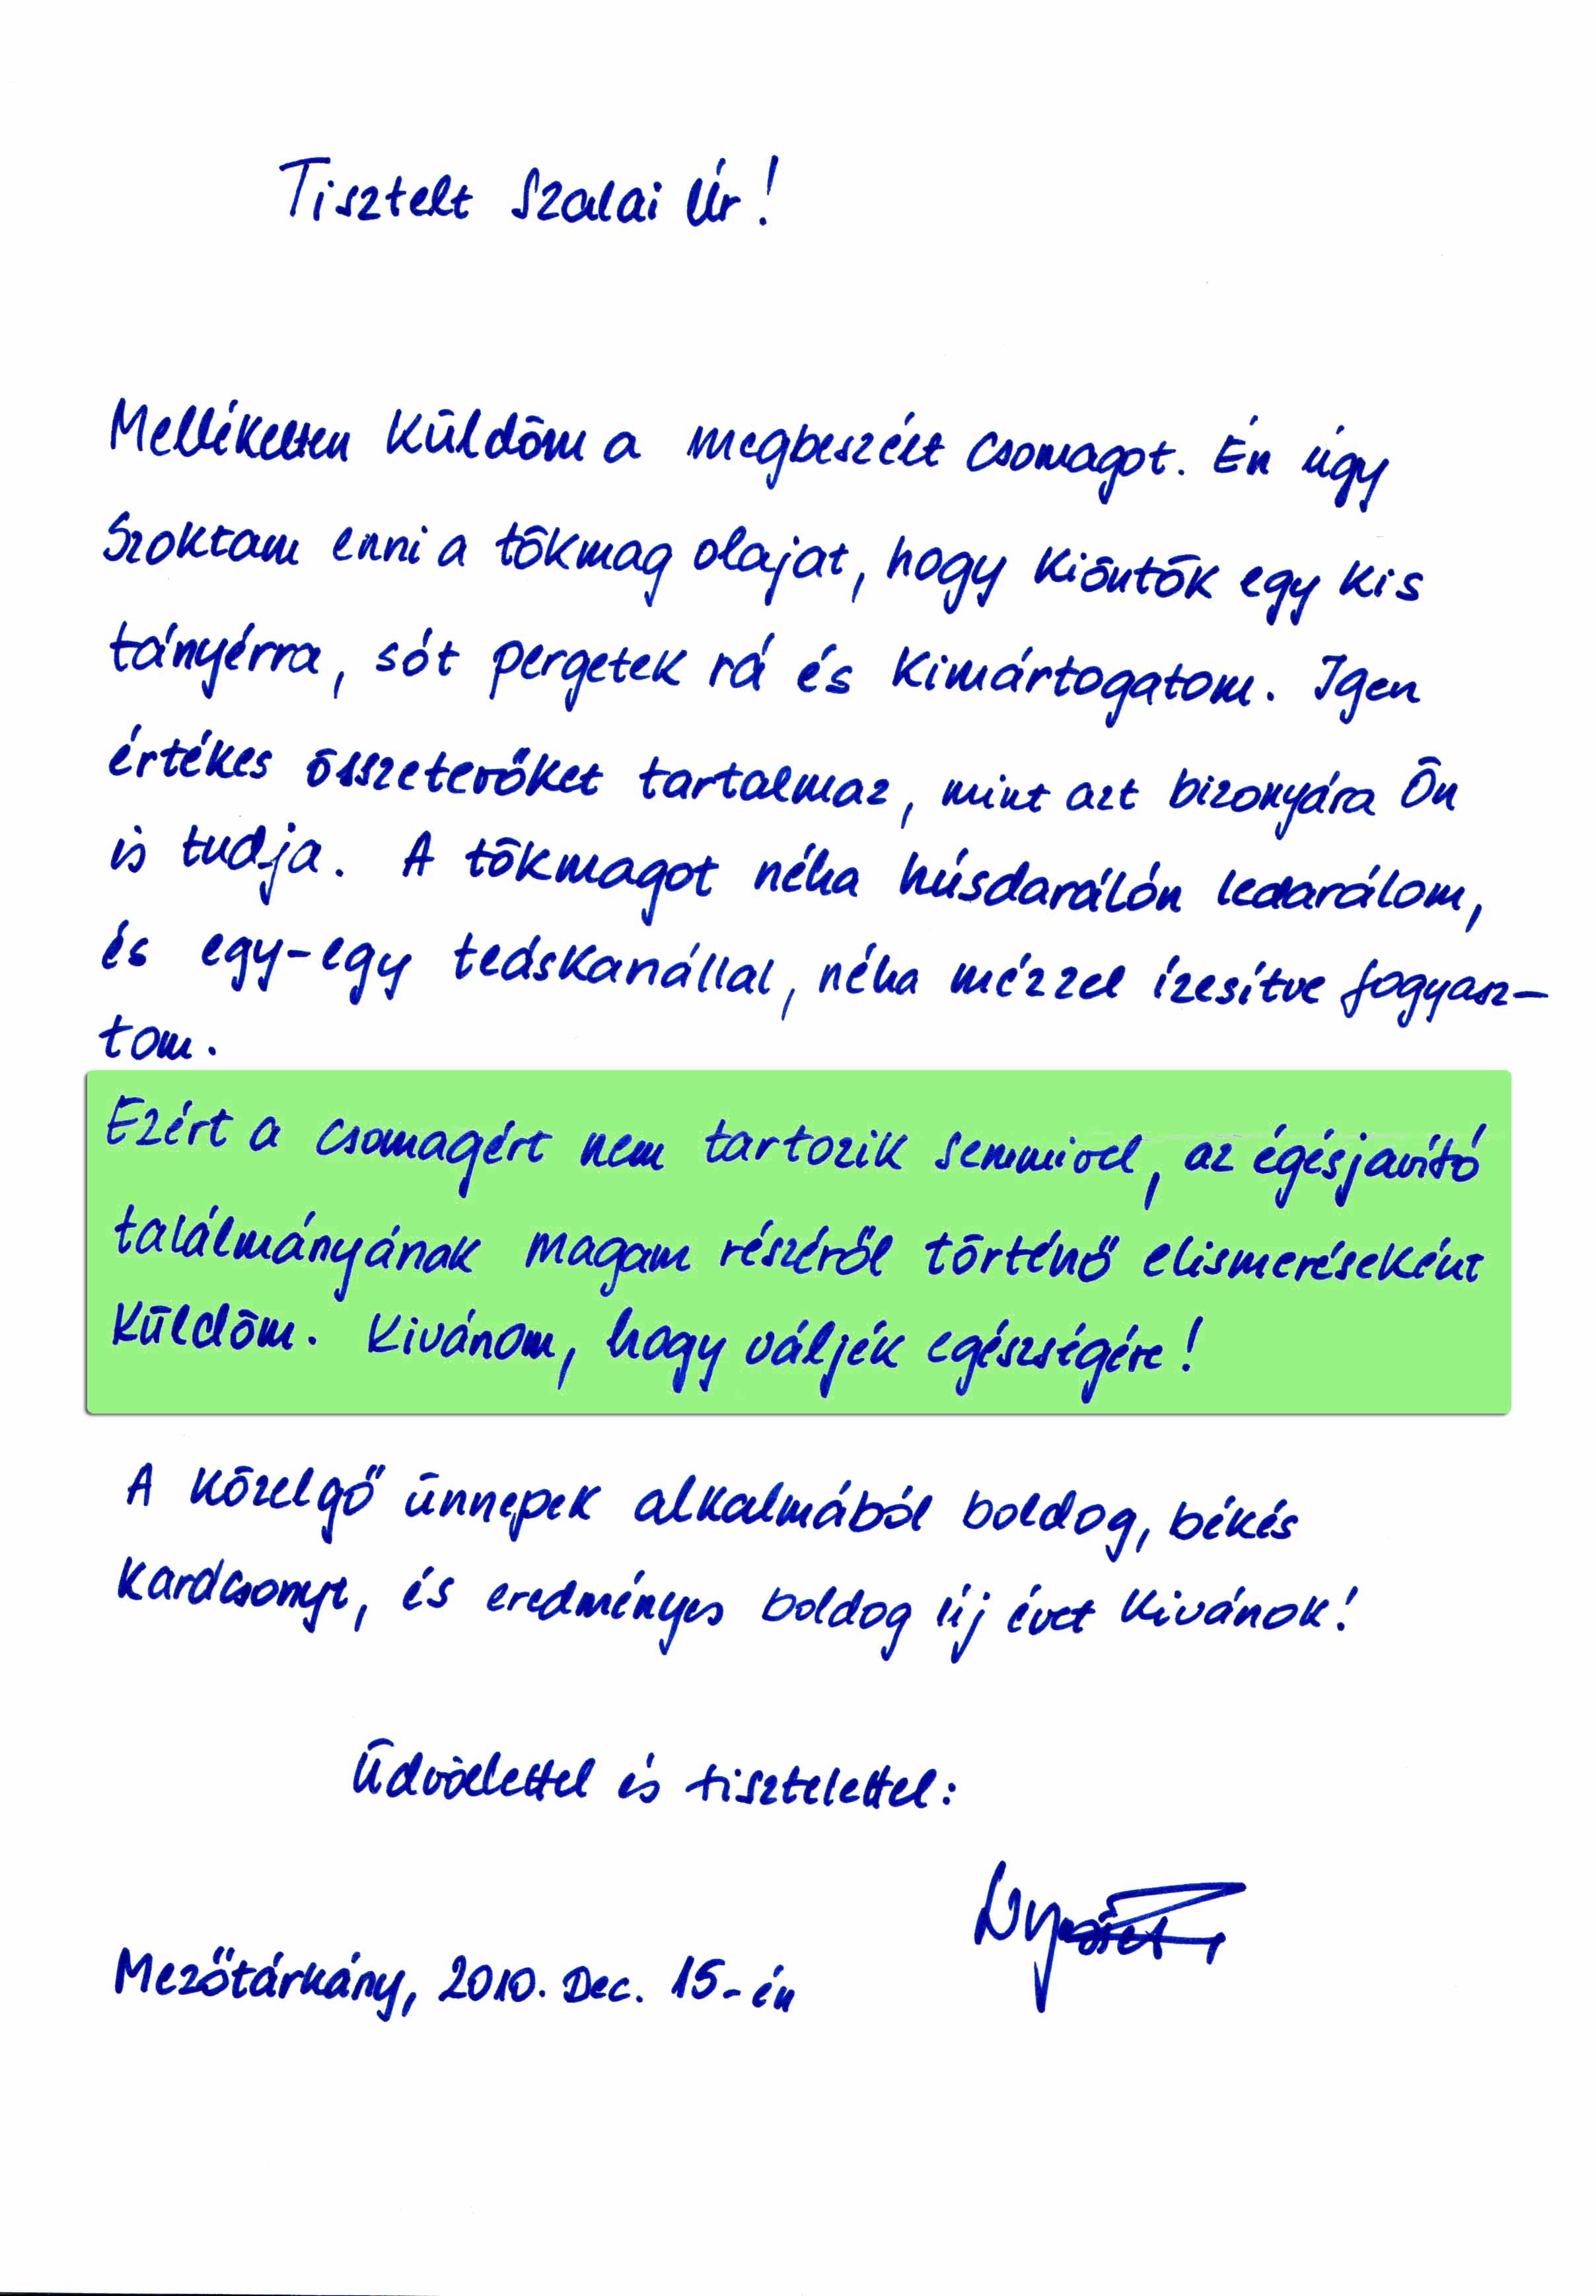 Tisztelt Szalai Úr!
Mellékelten küldöm a megbeszélt csomagot. Én úgy
szoktam enni a tökmag olajat, hogy kiöntök egy kis
tányérra, sót pergetek rá és kimártogatom. Igen
értékes összetevőket tartalmaz, mint azt bizonyára Ön
is tudja. A tökmagot néha húsdarálón ledarálom,
és egy-egy teáskanállal, néha mézzel ízesítve fogyasz-
tom.
Ezért a csomagért nem tartozik semmivel, az égésjavító
találmányának magam részéről történő elismeréseként
küldöm. Kivánom, hogy váljék egészségére!
A közelgő ünnepek alkalmából boldog, békés
karácsonyt, és eredményes boldog új évet kivánok!
Üdvözlettel és tisztelettel:
Mezőtárkány, 2010. Dec. 15-én